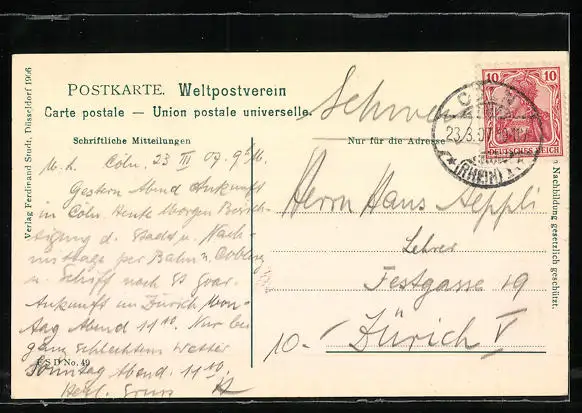 POSTKARTE. Weltpostverein
Carte postale — Union postale universelle.
Schriftliche Mitteilungen
Nur für die Adresse
Verlag Ferdinand Studt, Düsseldorf 1906
Nachbildung gesetzlich geschützt.
10 10
DEUTSCHES REICH
23.3.07
(RHEIN)
Cöln, 23 III 07.
Gestern Abend Ankunft
in Cöln. Heute Morgen Besich-
tigung d. Stadt u. Nach-
mittags per Bahn n. Coblenz
u. Schiff nach St Goar.
Ankunft in Zürich Mon-
tag Abend 11 10. Nur bei
ganz schlechtem Wetter
Sonntag Abend. 11 10.
Herzl. Gruss
F S D No. 49
Herrn Hans Aeppli
Lehrer
Festgasse 19
10.- Zürich V